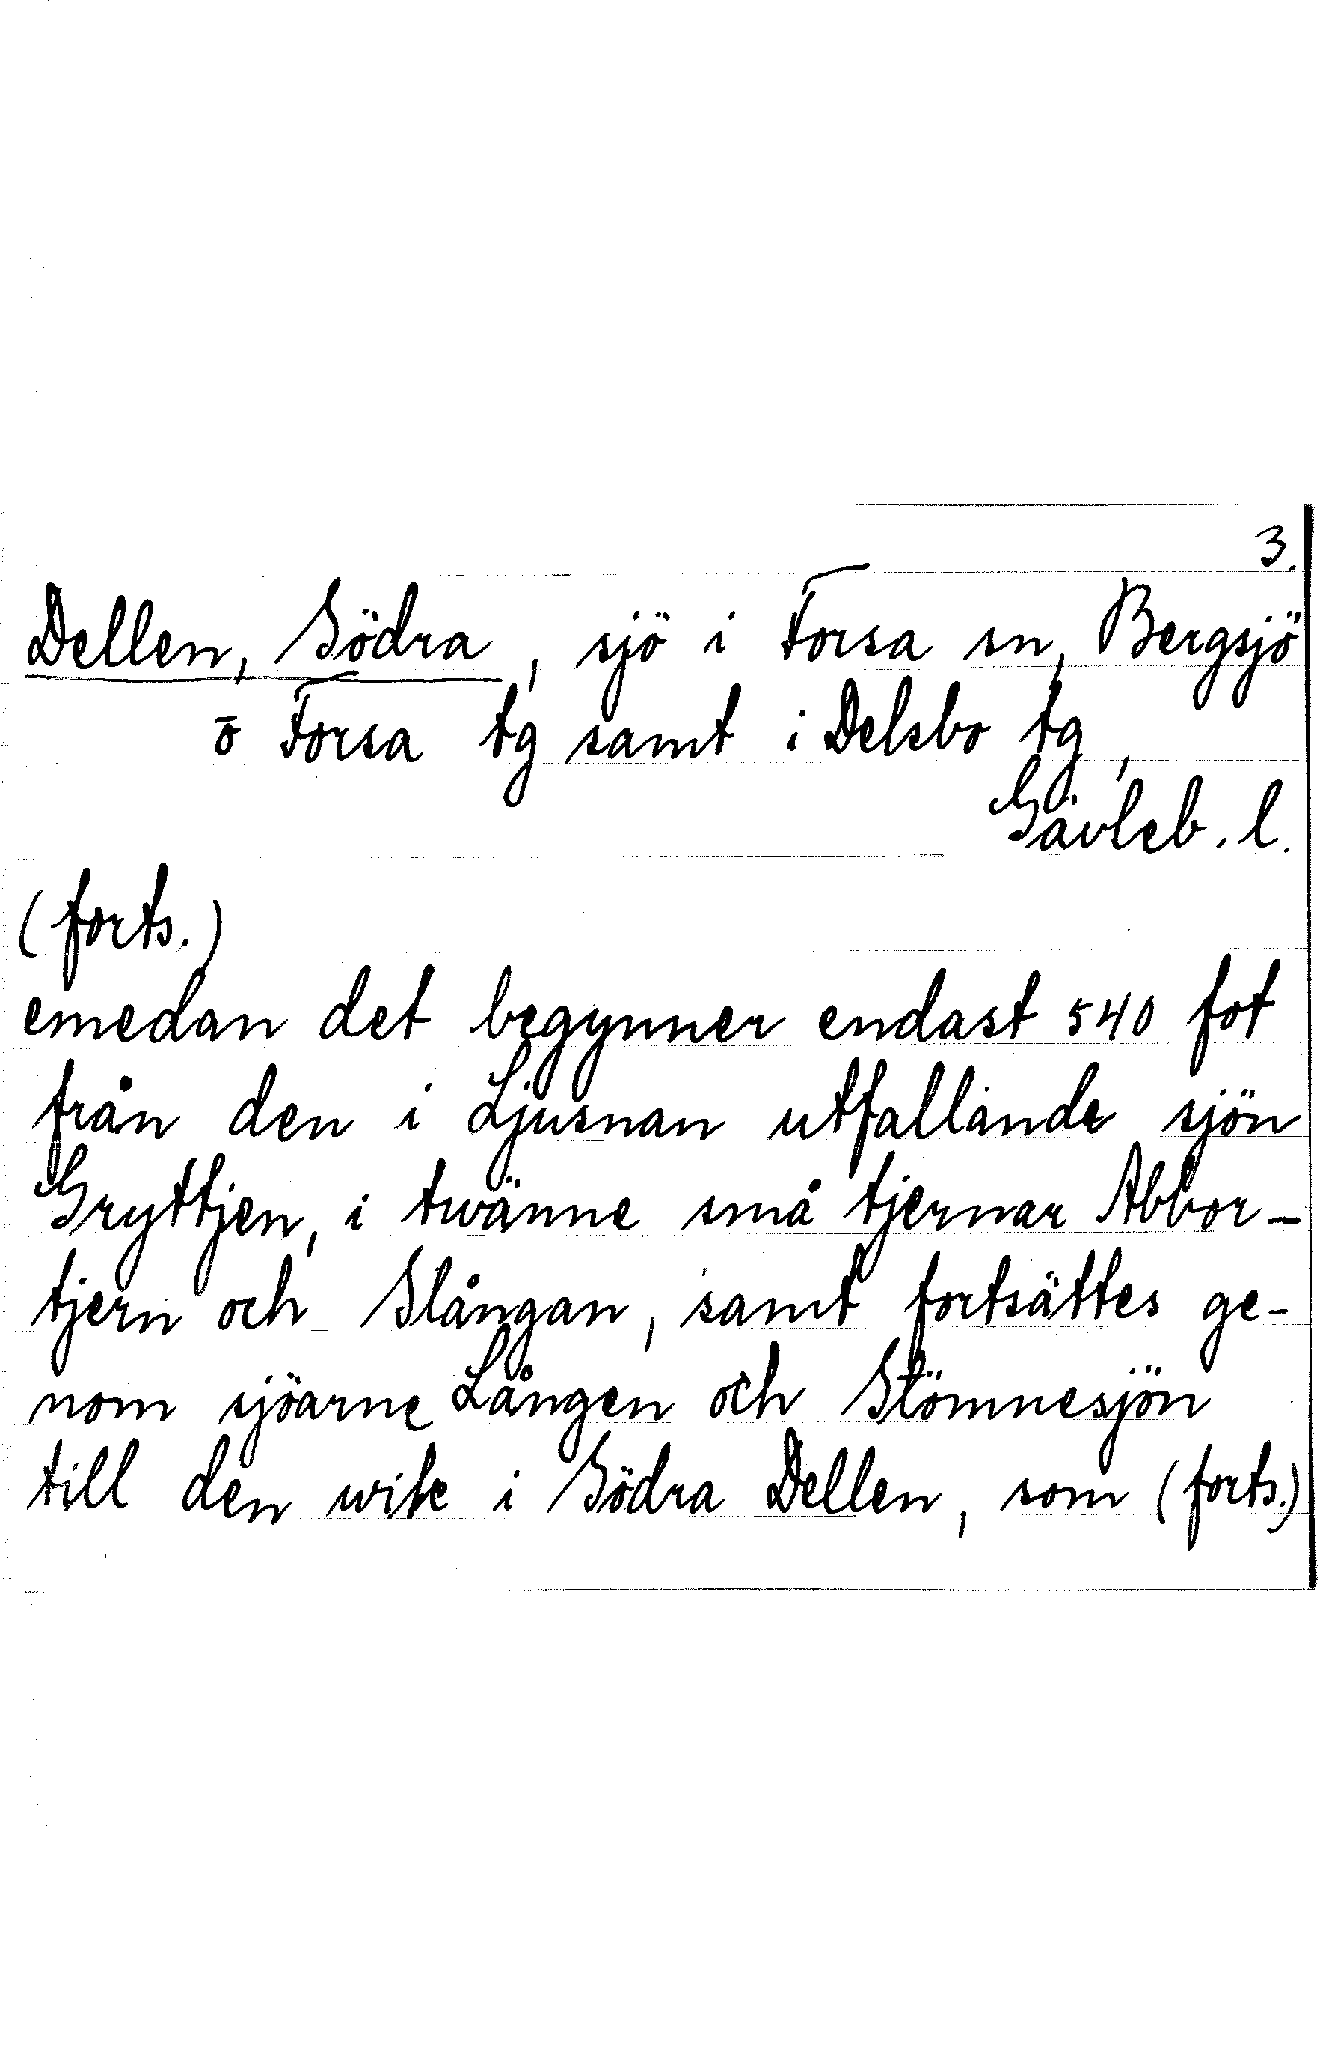 3.
Dellen, Södra, sjö i Forsa sn, Bergsjö
o Forsa tg samt i Delsbo tg,
Gävleb. l.
(forts.)
emedan det begynner endast 540 fot
från den i Ljusnan utfallande sjön
Gryttjen, i twänne små tjernar Abbor-
tjern och Slångan, samt fortsättes ge-
nom sjöarne Lången och Stömnesjön
till den wik i Södra Dellen, som (forts.)